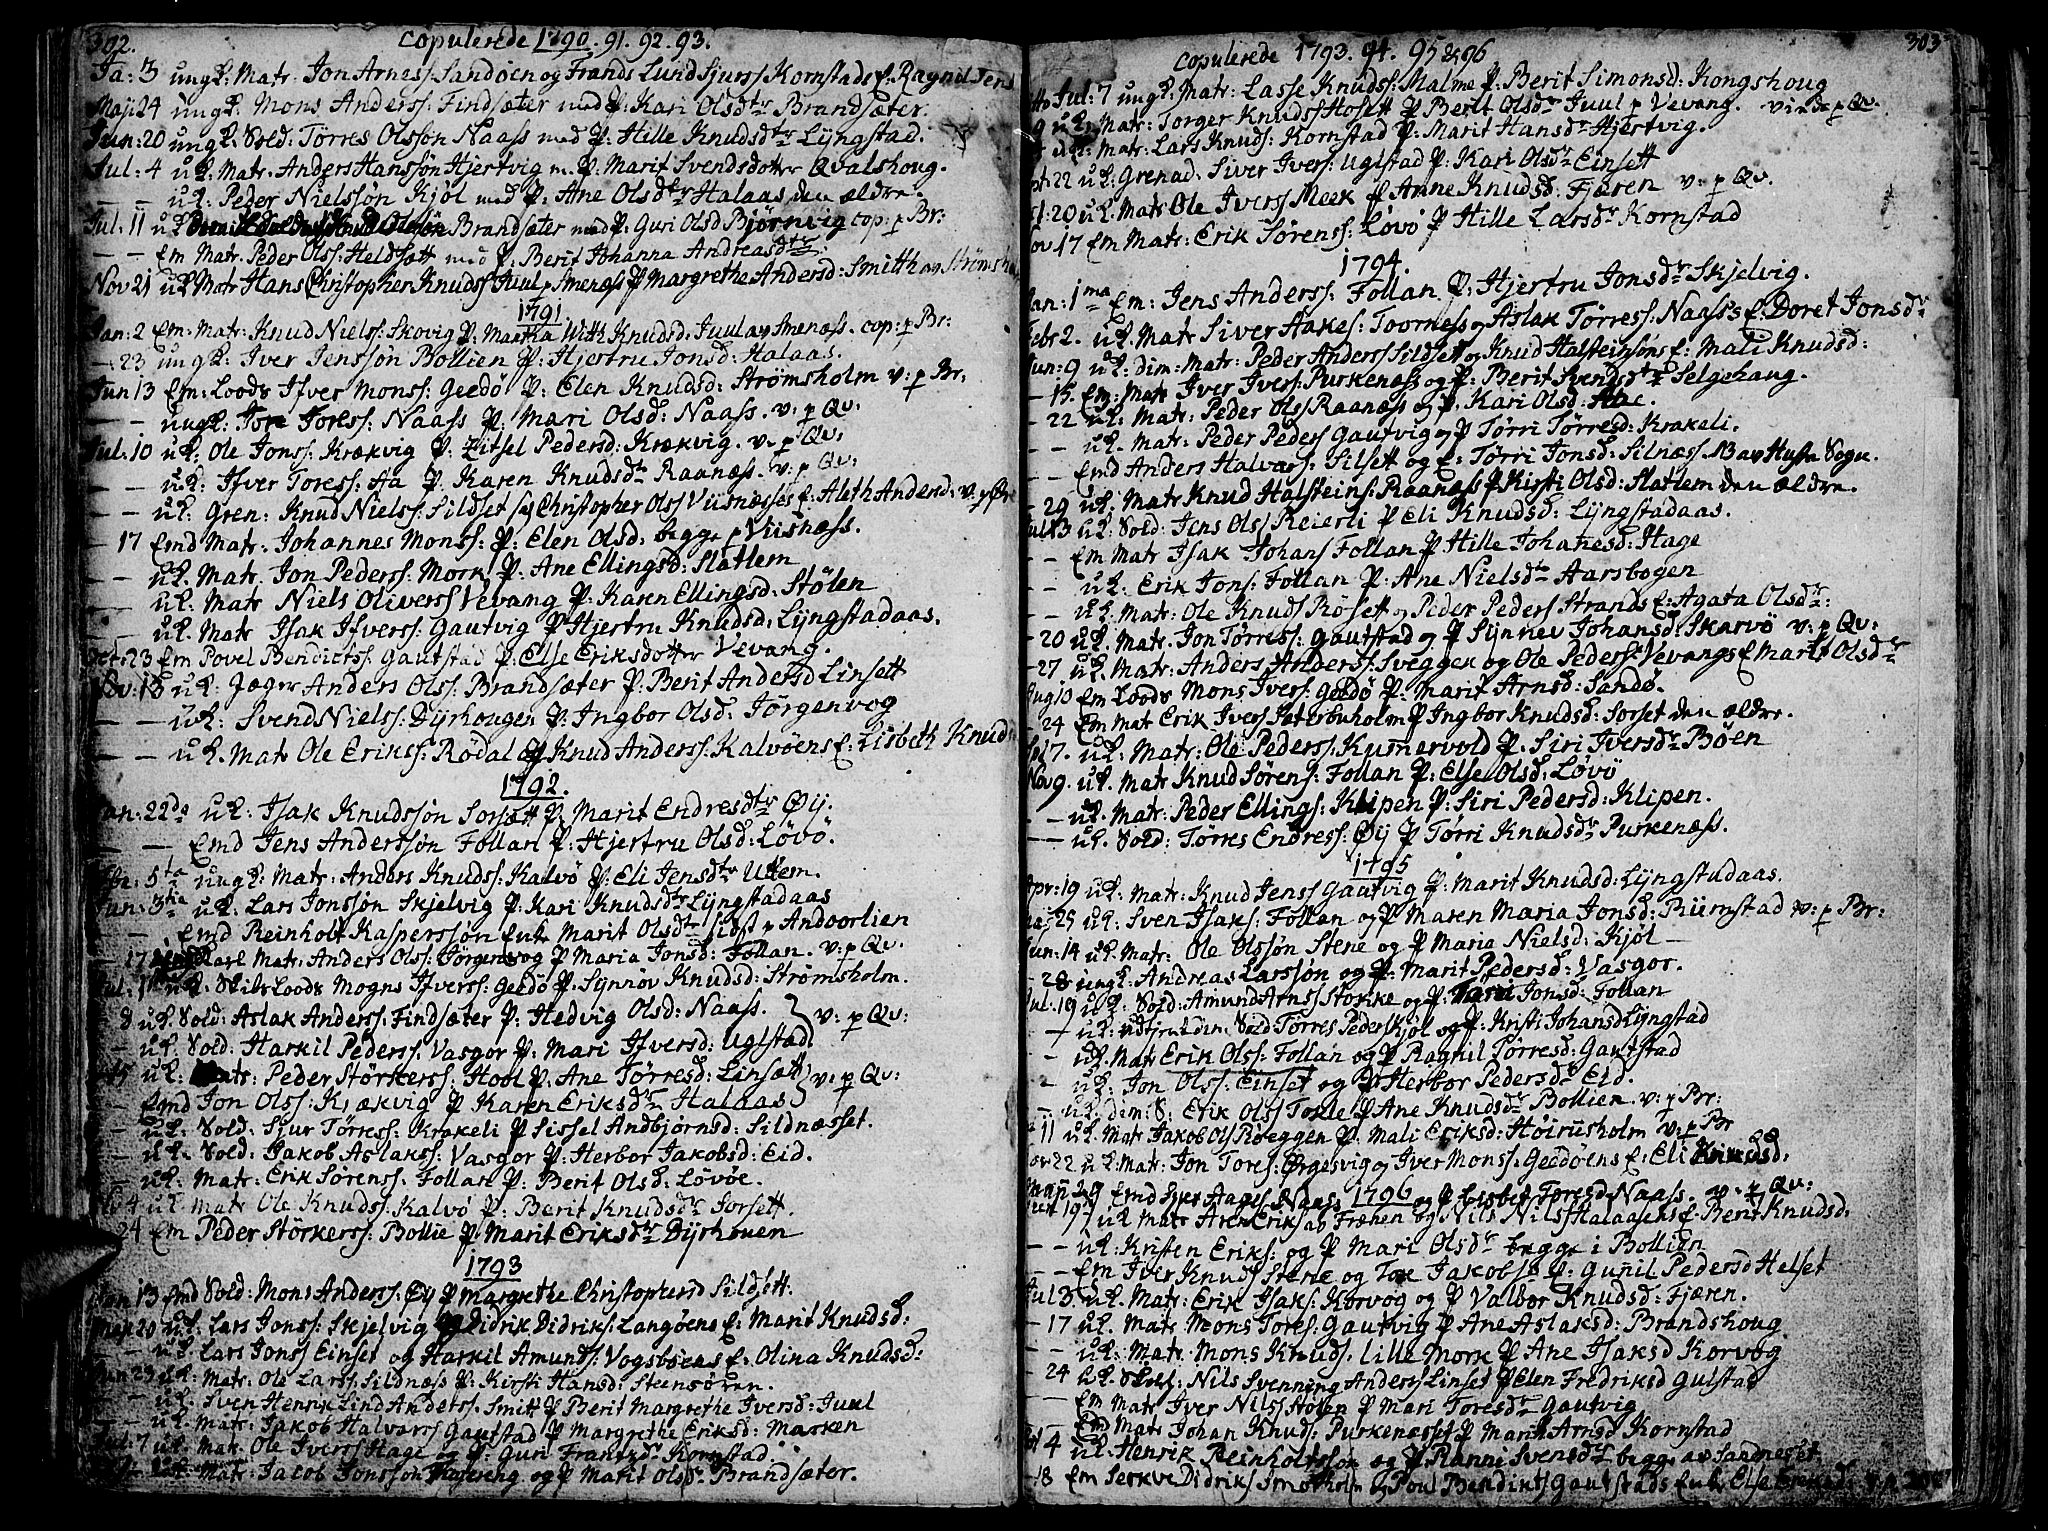 302.
Copulerede 1790. 91. 92. 93.
3 ungk: Matr: Jon Arnes: Sandöen og Frands Lund Sjurss Kornstads E. Ragnil Jens
Maji 24 ungk: Mons Anderss: Findsæter med P: Kari Olsdtr Brandsæter.
Jun: 20 ungk: Sold: Torres Olssøn Naass med P: Hille Knudsdtr Lÿngstad.
Jul: 4 uk: Matr. Anders Hanssøn Hjertvig m. P: Marit Svendsdotter Qvalshoug.
— — uk. Peder Nielssøn Kjøl med P: Ane Olsdtr Halaas den ældre.
Jul: 11 uk Brandsæter med P: Guri Olsd Bjørnvig cop: p Br:
— — Em Matr. Peder Olss: Heldsætt med P: Berit Johanna Andreasdtr
Nov: 21 uk Matr Hans Christopher Knudss Juul p Smenæss P Margrethe Andersd: Smith av Strömsh
1791
Jan: 2 Em: Matr: Knud Niels: Skovig P: Martha With Knudsd: Juul av Smenæss. cop: p Br:
— 23 ungk: Iver Jenssøn Bollien P: Hjertru Jonsd: Halaas.
Jun 13 Em: Loods Ifver Monss: Geedö P: Elen Knudsd: Strømsholm v: p Br:
— — ungk: Tore Joress: Naass P: Mari Olsd: Naass. v: p Qv:
Jul: 10 uk: Ole Jonss: Krækvig P: Zitsel Pedersd: Krækvig. v: p Qv:
— — uk: Ifver Toress: Aa P: Karen Knudsdtr Raanæss. v: p Qv:
— — uk: Gren: Knud Nielss: Sildset og Christopher Olss Viisnæsses E: Aleth Andersd: v: p Br
— 17 Emd Matr: Johannes Monss: P: Elen Olsd: begge p Viisnæss.
— — uk. Matr. Jon Pederss: Mork P: Ane Ellingsd: Slatlem
— — uk. Matr Niels Oliverss Vevang P: Karen Ellingsd: Stølen
— — uk. Matr Isak Ifverss: Gautvig P Hjertru Knudsd: Lÿngstadaas.
Oct: 23 Em Povel Bendictss: Gautstad P: Else Eriksdotter Vevang.
Nov: 13 uk: Jæger Anders Olss: Brandsæter P: Berit Andersd Linsett
— — uk: Svend Nielss: Dÿrhougen P: Ingbor Olsd: Jørgenvog
— — uk. Matr Ole Erikss: Rødal og Knud Anderss: Kalvöens E: Lisbeth Knud
1792.
Jan: 22de uk: Isak Knudssøn Sorsett P: Marit Endresdtr Øij.
— — Emd Jens Anderssøn Follan P: Hjertru Olsd: Løvö.
5ta ungk: Matr: Anders Knudss: Kalvö P: Eli Jensdtr Utem.
Jun: 3tia uk: Lars Jonssøn Skjelvig P: Kari Knudsdtr Lÿngstadaas
— Emd Reinholt Kasperssøn Enke Marit Olsdtr sidst p Andoorlien
— 17 Karl Matr: Anders Olss: Jørgenvog P Maria Jonsd: Follan. v: p Qv:
Jul: 1 uk. Skils Loods Mogns Ifverss: Geedö P: Sÿnnöv Knudsd: Strømsholm.
8 uk. Sold: Aslak Anderss: Findsæter P: Hedvig Olsd: Naass. v: p Qv:
— uk. Sold: Harkil Pederss: Vasgor P: Mari Ifversd: Uglstad
15 uk: Matr: Peder Störkerss: Hool P: Ane Tørresd: Linsett v: p Qv:
— Emd Jon Olss: Krækvig P Karen Eriksdtr Halaas
— uk: Sold: Sjur Tørress: Krakeli P Sissel Andbjørnsd: Sildnæsset.
— uk. Sold: Jakob Aslakss: Vasgor P: Herbor Jakobsd: Eid.
— uk: Matr: Erik Sørenss: Follan P: Berit Olsd: Løvöe.
4 uk: Matr Ole Knuds: Kalvö P: Berit Knudsdtr Sorsett.
24 Em Peder Störkerss: Bollie P: Marit Eriksdtr Dÿrhouen
1793
Jan 13 Emd Sold: Mons Anderss: Öij P Margrethe Christophersd Sildsett.
20 uk. Lars Jonss: Skjelvig og Didrik Didriks: Langöens E: Marit Knudsd:
— — uk Lars Jonss Einset og Harkil Amunds: Vogsböens E: Olina Knudsd:
Jun 23 uk: Matr: Ole Larss Sildnæss P: Kirsti Hansd: Steensören.
— — uk. Sven Henrik Lind Anderss: Smitt P Berit Margrethe Iversd: Juul
— — uk. Matr: Jakob Halvarss Gautstad P Margrethe Eriksd: Marken
Jul: 7 uk. Mak. Ole Iverss Hage og P: Guri Frantzdr Kornstad
— uk. Matr: Jacob Jonssøn og P Marit Olsd: Brandsæter.
303
Copulerede 1793. 94. 95 & 96
Jul: 7 ungk: Matr: Lasse Knuds: Malmø P: Berit Simonsd: Kongshoug
9 uk: Matr: Torger Knuds Hosett P Berit Olsdtr Juul p Vevang. viede p Qv.
uk: Matr: Lars Knuds: Kornstad P: Marit Hansdr Hjertvig.
22 uk: Grenad: Siver Ivers: Uglstad P: Kari Olsdr Einsett
20 uk: Matr Ole Iverss Meek P Anne Knudsd: Fjæren v: p Qv.
Nov 17 Em Matr: Erik Sørenss: Løvö P Hille Larsdr Kornstad
1794.
Jan: 1ma Em: Jens Anderss: Follan P: Hjertru Jonsdtr Skjelvig.
Febr 2. uk. Matr Siver Aakes: Toorness og Aslak Tørress: Naass's E: Doret Jonsdr
Jun: 9 uk: dim: Matr: Peder Anderss Sildset og Knud Halsteinsøns E: Mali Knudsd:
— 15. Em: Matr Iver Ivers: Purkenæss og P: Berit Svendsdtr Selgehaug.
— 22 uk: Matr: Peder Olss Raanæss og P. Kari Olsd:
— — uk. Matr: Peder Peders Gautvig og P Tørri Tørresd: Krakeli.
— — Emd Anders Halvars: Silsett og E: Tørri Jonsd: Silnæss NB av Husta Sogn.
— 29 uk: Matr Knud Halsteins: Raanæss P Kirsti Olsd: Slatlem den ældre.
Jul 13 uk: Sold: Jens Olss Reierli P Eli Knudsd: Lÿngstadaas.
— — Em Matr Isak Johans Follan P Hille Johanesd: Hage
— — uk: Erik Jons: Follan P: Ane Nielsdtr Aarsbogen
— — uk: Matr: Ole Knuds Røsett og Peder Peders Strands E: Agata Olsdtr:
— 20 uk: Matr: Jon Tørress: Gautstad og P Sÿnnev Johansd: Skarvö v: p Qv:
— 27 uk: Matr: Anders Anderss: Sveggen og Ole Pederss Vevangs E Marit Olsdtr
Aug 10 Em Loods Mons Ivers: Geedö P: Marit Arnsd: Sandö.
24 Em Mat Erik Ivers Sæterbuholm P Ingbor Knudsd: Sorset den ældre.
7. uk: Matr: Ole Pederss: Kumervold P: Siri Iversdtr Böen
Nov 9. uk. Matr Knud Sørens: Follan P: Else Olsd: Løvö
— — uk. Matr: Peder Ellings: Klipen P: Siri Pedersd: Klipen.
— — uk. Sold: Tørres Endress: Øij P Tørri Knudsdr Purkenæss.
1795
Apr: 19 uk: Matr: Knud Jenss Gautvig P: Marit Knudsd: Lÿngstadaas.
25 uk: Sven Isaks: Follan og P Maren Maria Jonsd: Rürnstad v: p Br:
Jun: 14 uk: Matr: Ole Olssøn Stene og P Maria Nielsd: Kjøl —
— 28 ungk. Andreas Larssøn og P: Marit Pedersd: Vasgor.
Jul: 19 uk: Sold: Amund Arnss Storike og P: Jonsd: Follan
— uk: Sold Tørres Peders Kjøl og P: Kristi Johansd Lÿngstad
— uk. Matr Erik Olss: Follan og P Ragnil Tørresd: Gautstad
— uk: Jon Olss: Einset og P: Herbor Pedersdr Eid.
— — uk: dim: S: Erik Olss Tolle P Ane Knudsdr Bollien. v: p Br:
11 uk: Matr Jakob Ols Røeggen P: Mali Eriksd: Hoirusholm v: p Br
Nov 22 uk: Matr: Jon Tores: Ørgesvig og Iver Mons: Geedöens E: Eli Knudsd:
29 Emd Siver Aages Naass 1796 og P Lisbet Toresd Naass. v: p Qv:
Jun 19 uk Matr Aren Eriks av Fræhen og Nils Nilss Halaasens E: Berit Knudsd.
— — uk: Kristen Eriks: og P Mari Olsdr begge i Bollien
— — Em Iver Knuds Stene og P: Gunil Pedersd Helset
Jul 3. uk. Matr: Erik Isaks: Korvog og P Valbor Knudsd: Fjæren.
— 17 uk. Matr Mons Tores: Gautvig P Ane Aslaksd: Brandshoug
— — uk: Matr: Mons Knuds. Lille Mork P Ane Isaksd Korvog
— 24 uk. Skoel: Nils Svenning Anderss Linset P Elen Fredriksd Gulstad
— — Em Matr Iver Nilss Stølen P Mari Toresdr Gautvig
— Emd Matr Johan Knud: Purkenæsset P Marit Arnsd Kornstad
4 uk Henrik Reinholtssøn og P Ranni Svensdr begge av Sandneset
18 Em Serkve Didriks Smørholm og Poul Bendiks Gautstads Enke Else Eriksd: